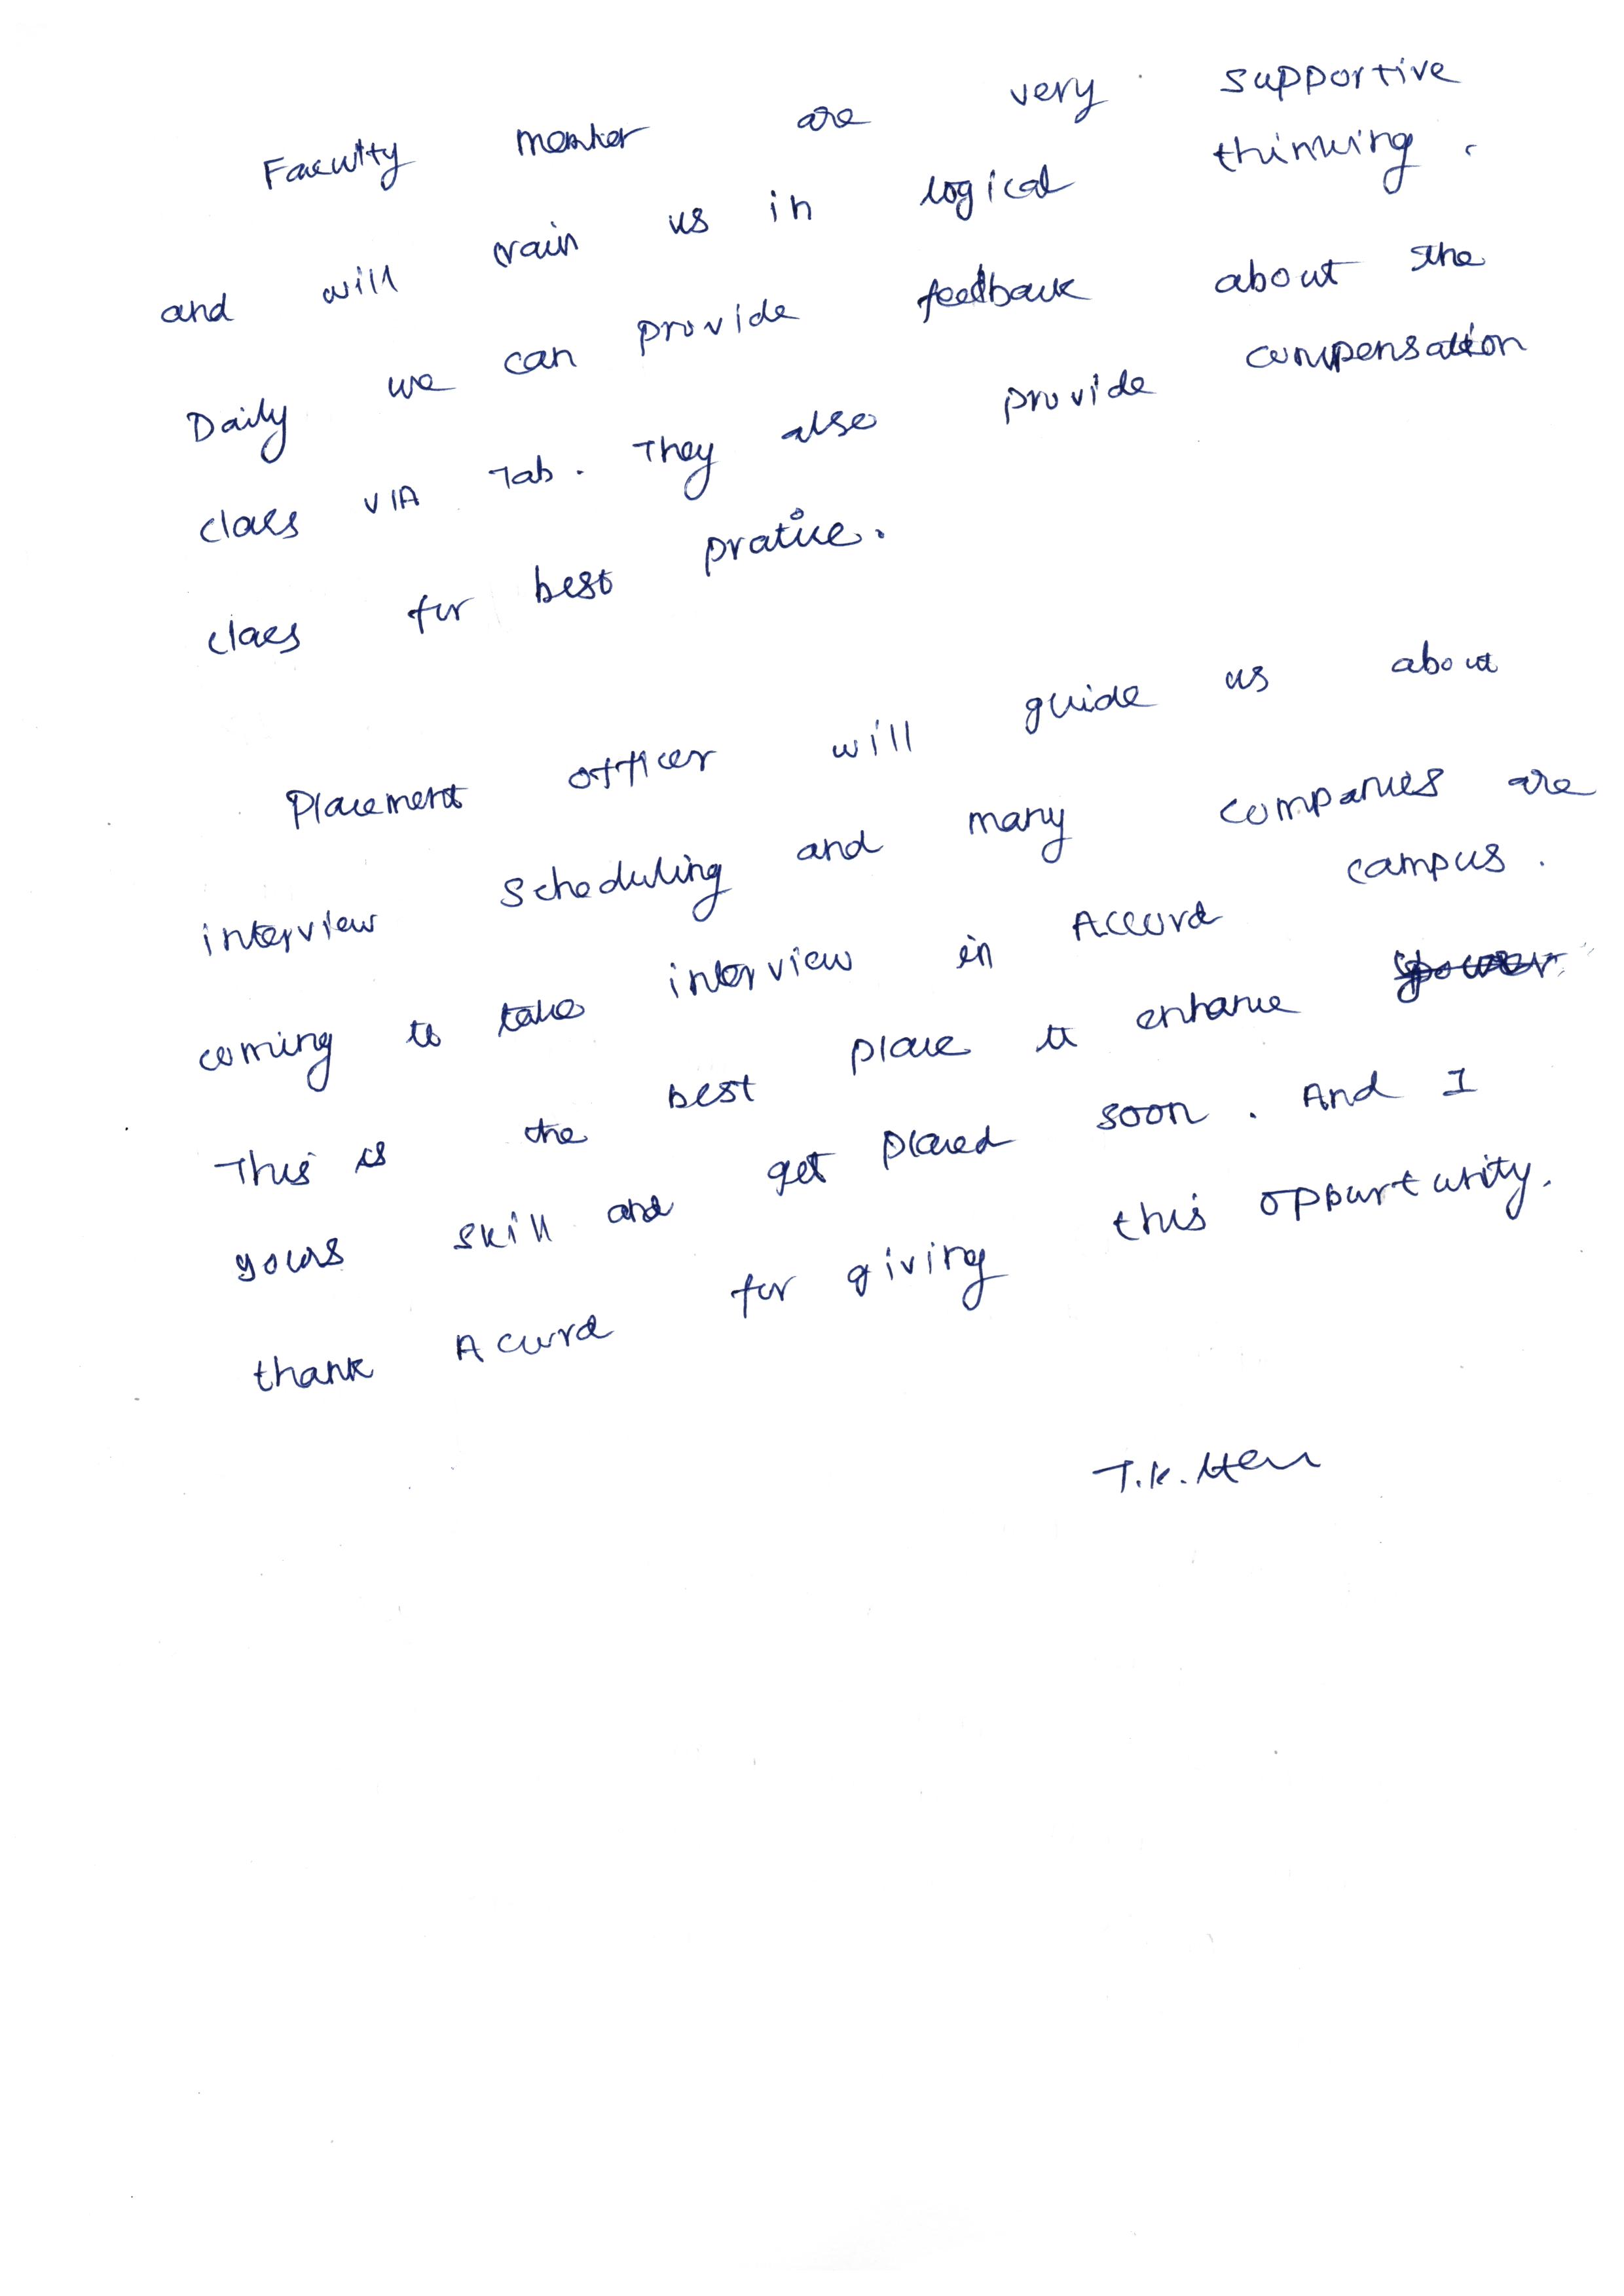 Faculty member are very supportive
and will train us in logical thinking.
Daily we can provide feedback about the
class VIA Tab. They also provide compensation
class for best pratice.
Placement officer will guide us about
interview scheduling and many companies are
coming to take interview in Accord campus.
This is the best place to enhance
yours skill and get placed soon. And I
thank Acord for giving this oppurtunity.
T.K.